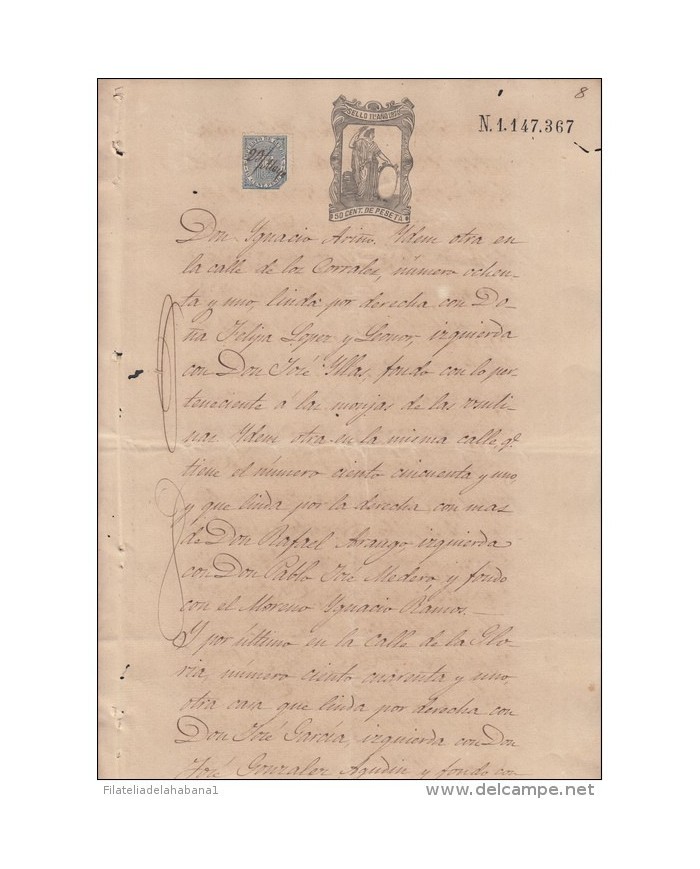 8
N.1.147.367
SELLO 11º AÑO
50 CENT. DE PESETA
Don Ygnacio Ariño. Ydem otra en
la calle de los Corrales, número ochen-
ta y uno, linda por derecha con Do-
ña Felipa Lopez y Leonor izquierda
con Don José Yllas, fondo con lo per
teneciente á las monjas de las Ursuli-
nas Ydem otra en la misma calle, qᵉ
tiene el número ciento cincuenta y uno,
y que linda por la derecha con mas
de Don Rafael Arango izquierda
con Don Pablo José Medero, y fondo
con el Moreno Ygnacio Ramos.—
Y por último en la calle de la Glo-
ria, número ciento cuarenta y uno,
otra casa que linda por derecha con
Don José García, izquierda con Don
José Gonzalez Agudin y fondo con
Filateliadelahabana1
delcampe.net